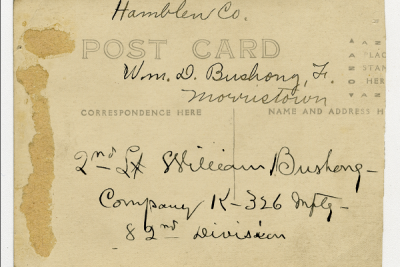 Hamblen Co.
POST CARD
Wm. D. Bushong, Jr.
Morristown
CORRESPONDENCE HERE
NAME AND ADDRESS H
PLAC
STAM
HER
2nd Lt William Bushong-
Company K-326 Infty-
82nd Division